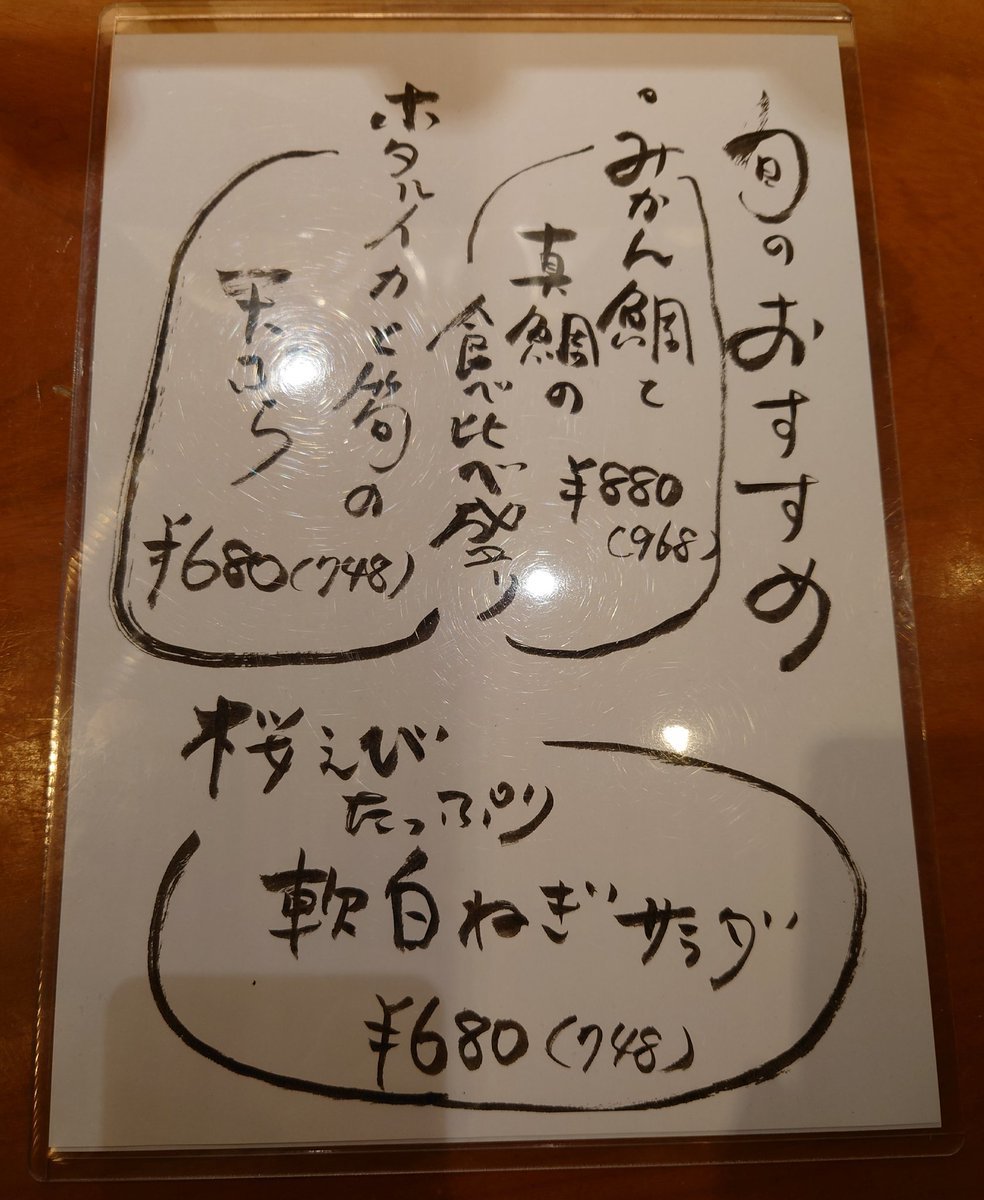 旬のおすすめ
・みかん鯛と
真鯛の
食べ比べ盛り
¥880
(968)
ホタルイカと筍の
天ぷら
¥680(748)
桜えび
たっぷり
軟白ねぎサラダ
¥680(748)